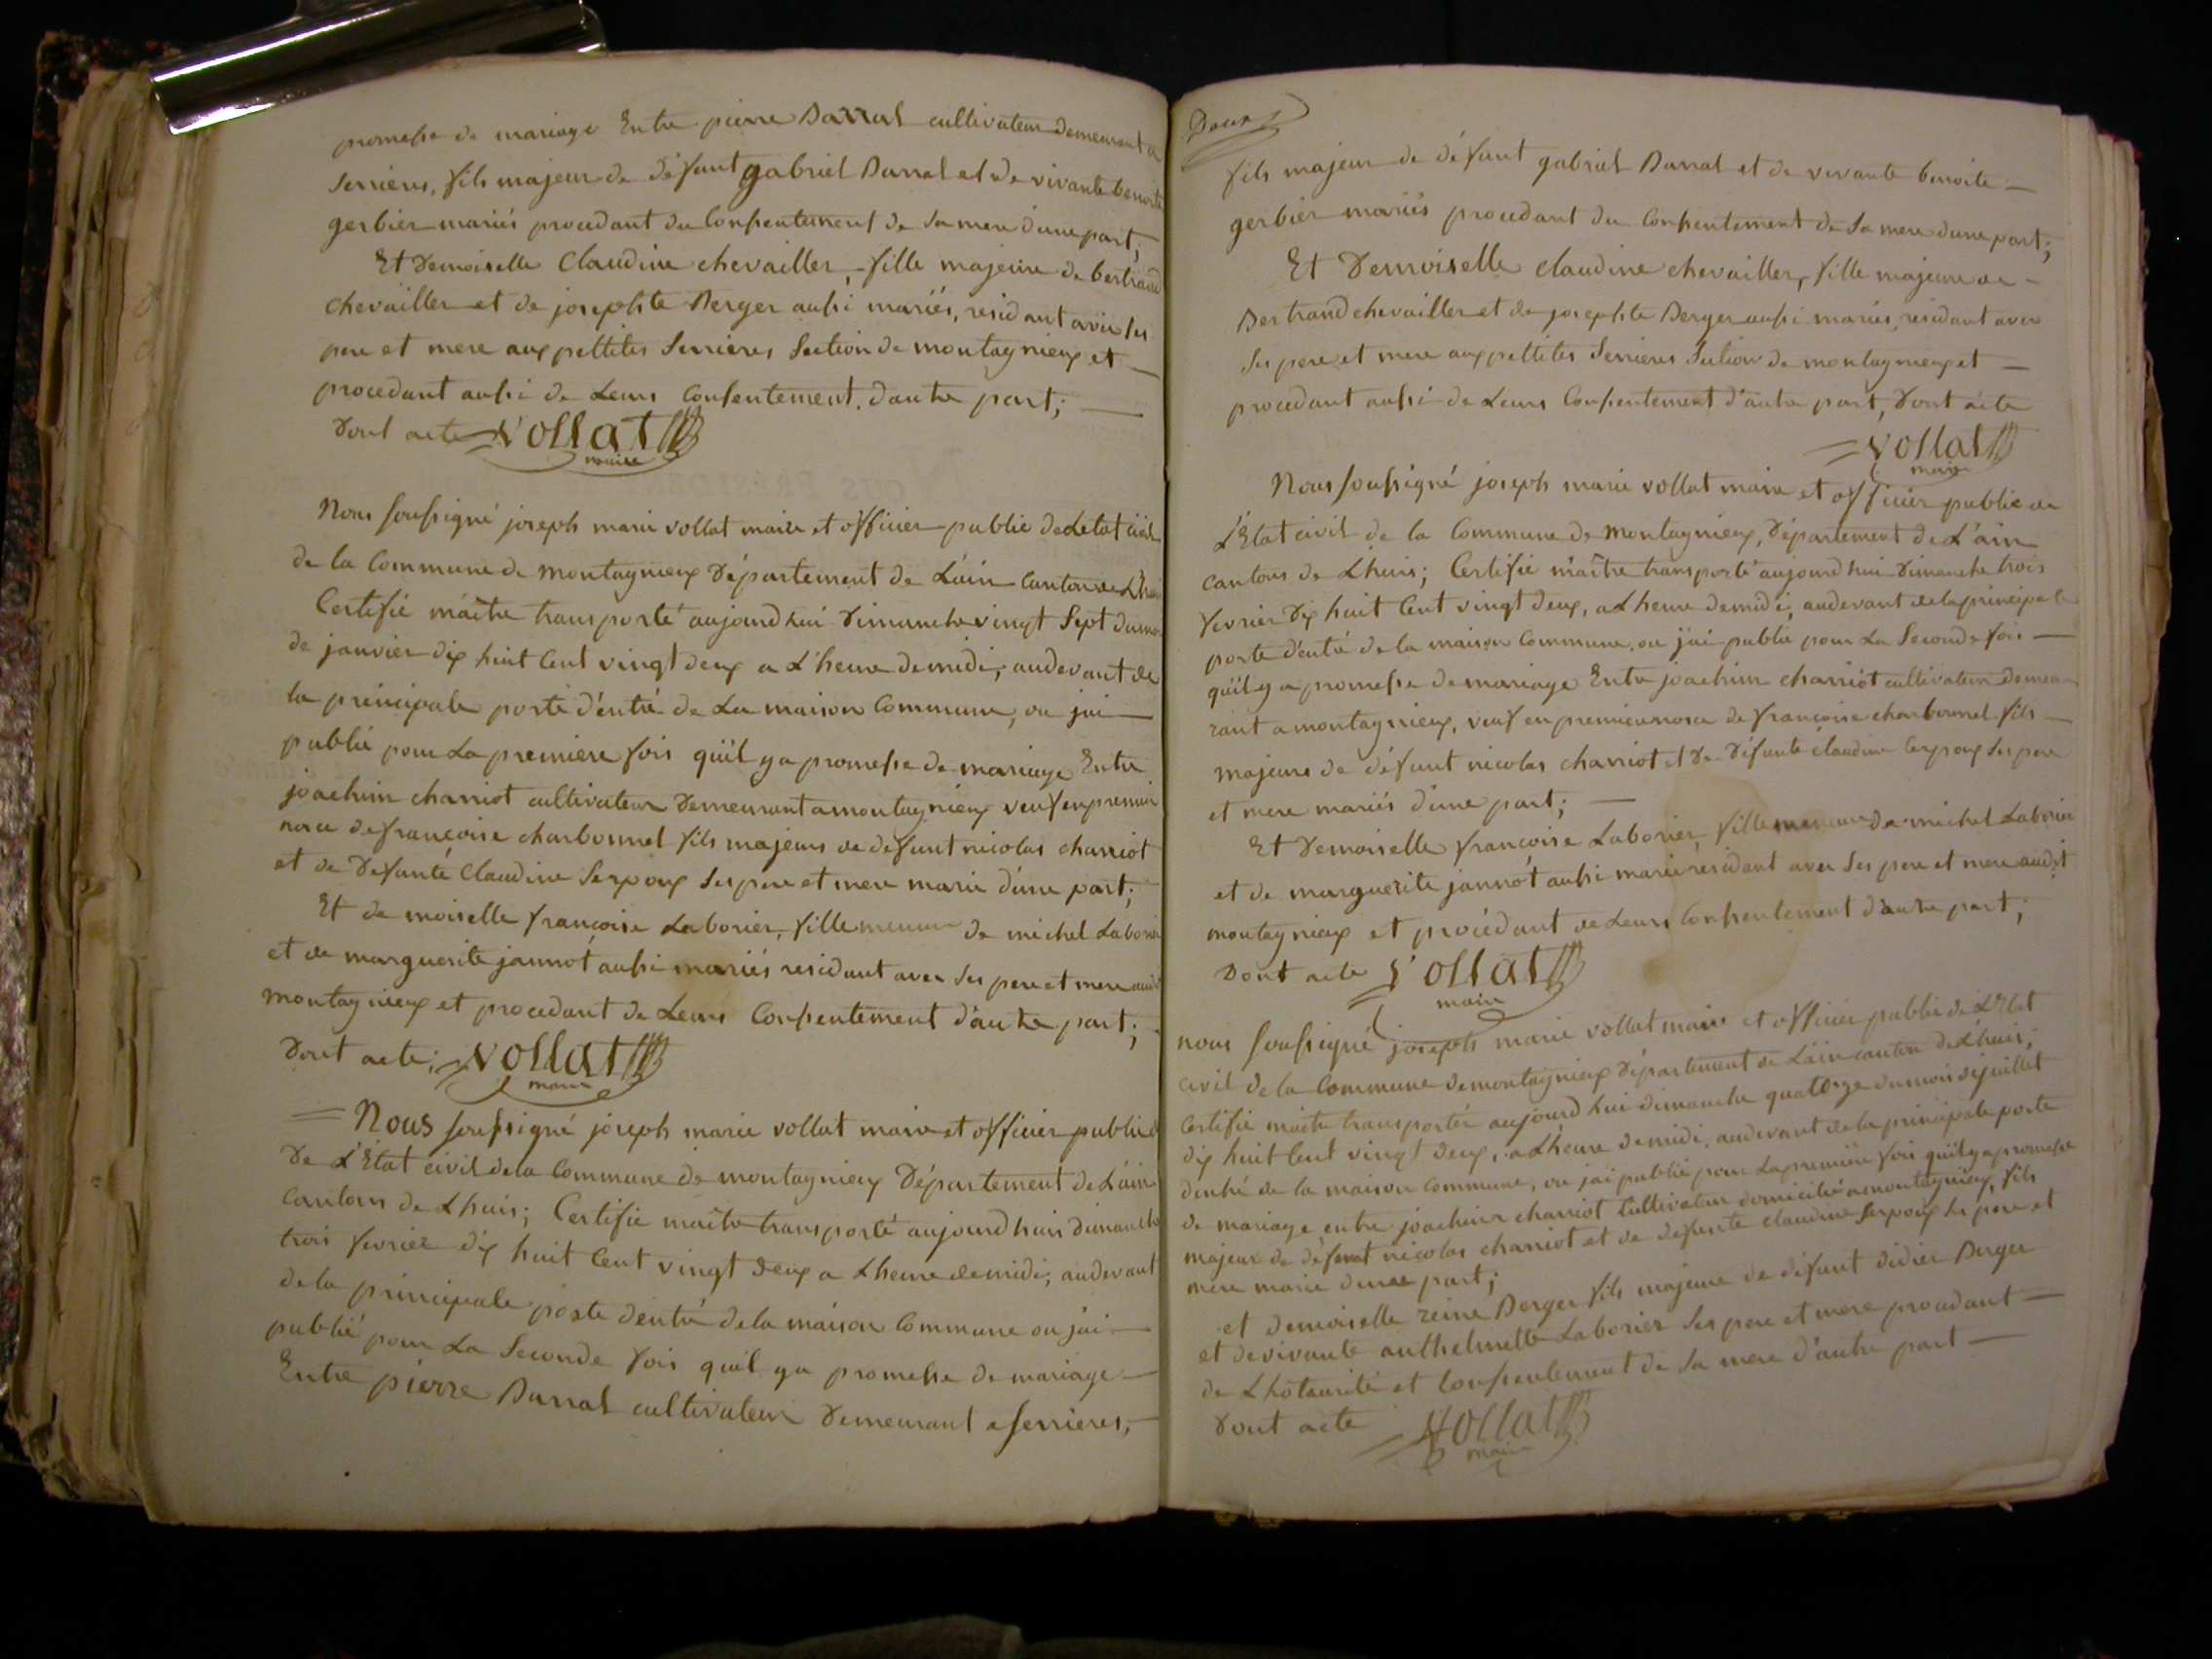 promesse de mariage Entre pierre Darral cultivateur demeurant a
Serrieres, fils majeur de défunt gabriel Darral et de vivante benoite
gerbier mariés procedant du Consentement de sa mere d'une part;
Et Demoiselle Claudine chevailler, fille majeure de bertrand
chevailler et de josephte Berger aussi mariés, residant avec ses
pere et mere aux pettites Serrieres Section de montagnieux et —
procedant aussi de Leurs Consentement. d'autre part; —
Dont acte Vollat
maire
Nous soussigné joseph marie vollat maire et officier public de Letat civil
de la Commune de montagnieux Département de L'ain Canton de Lhuis
Certifie m'aître transporté aujourd'hui Dimanche vingt Sept du mois
de janvier dix huit Cent vingt deux a L'heure de midi, audevant de
la principale porte d'entré de La maison Commune, ou j'ai —
publié pour La premiere fois qu'il y a promesse de mariage Entre
joachim charriot cultivateur Demeurant a montagnieux veuf en premier
noce de françoise charbonnel fils majeurs de defunt nicolas charriot
et de Défunté Claudine Serpoux Ses pere et mere marié d'une part;
Et de moiselle françoise Laborier, fille mineure de michel Laborier
et de marguerite jannot aussi mariés residant avec Ses pere et mere audit
montagnieux et procedant de Leurs Consentement d'autre part;
Dont acte; Vollat
maire
= Nous soussigné joseph marie vollat maire et officier public
De L'Etat civil de la Commune de montagnieux Département de L'ain
Cantons de Lhuis; Certifie maître transporté aujourd'huis dimanche
trois fevrier dix huit Cent vingt deux a Lheure de midi; audevant
de la principale porte d'entré de la maison Commune ou j'ai —
publié pour La Seconde fois quil ya promesse de mariage —
Entre pierre Darral cultivateur Demeurant a Serrieres, —
Deux
fils majeur de défunt gabriel Darral et de vivante benoite —
gerbier mariés procedant du Consentement de Sa mere d'une part;
Et Demoiselle claudine chevailler, fille majeure de —
Bertrand chevailler et de josephte Berger aussi mariés, residant avec
Ses pere et mere aux pettites Serrieres Section de montagnieux et —
procedant aussi de Leurs Consentement d'autre part, Dont acte
= Vollat
maire
Nous soussigné joseph marie vollat maire et officier public de
L'Etat civil de la Commune de montagnieux, Département de L'ain
cantons de Lhuis; Certifie m'aître transporté aujourd'hui Dimanche trois
fevrier Dix huit Cent vingt deux, a Lheure de midi, audevant de la principale
porte d'entré de la maison Commune, ou j'ai publié pour La Seconde fois —
qu'il y a promesse de mariage Entre joachim charriot cultivateur demeu
rant a montagnieux, veuf en premier noce de françoise charbonnel fils —
majeurs de défunt nicolas charriot et De Défunté claudine Serpoux Ses pere
et mere mariés d'une part; —
Et Demoiselle françoise Laborier, fille mineure de michel Laborier
et de marguerite jannot aussi marié residant avec Ses pere et mere audit
montagnieux et procédant de Leurs Consentement d'autre part;
Dont acte Vollat
maire
nous soussigné joseph marie vollat maire et officier public de L'Etat
civil de la Commune de montagnieux Département de L'ain canton de Lhuis;
Certifie maitre transportér aujourd'hui dimanche quatorze du mois de juillet
dix huit Cent vingt deux, a Lheure de midi, audevant de la principale porte
d'entré de la maison commune, ou j'ai publié pour La premiere fois qu'il y a promesse
de mariage entre joachim charriot Cultivateur domicilié a montagnieux, fils
majeur de défunt nicolas charriot et de defunte claudine Serpoux Ses pere et
mere marié d'une part;
et demoiselle reine Berger fils majeure de défunt didier Berger
et de vivante anthelmette Laborier Ses pere et mere procedant —
de Lhotaurité et Consentement de Sa mere d'autre part —
Dont acte = Vollat
maire